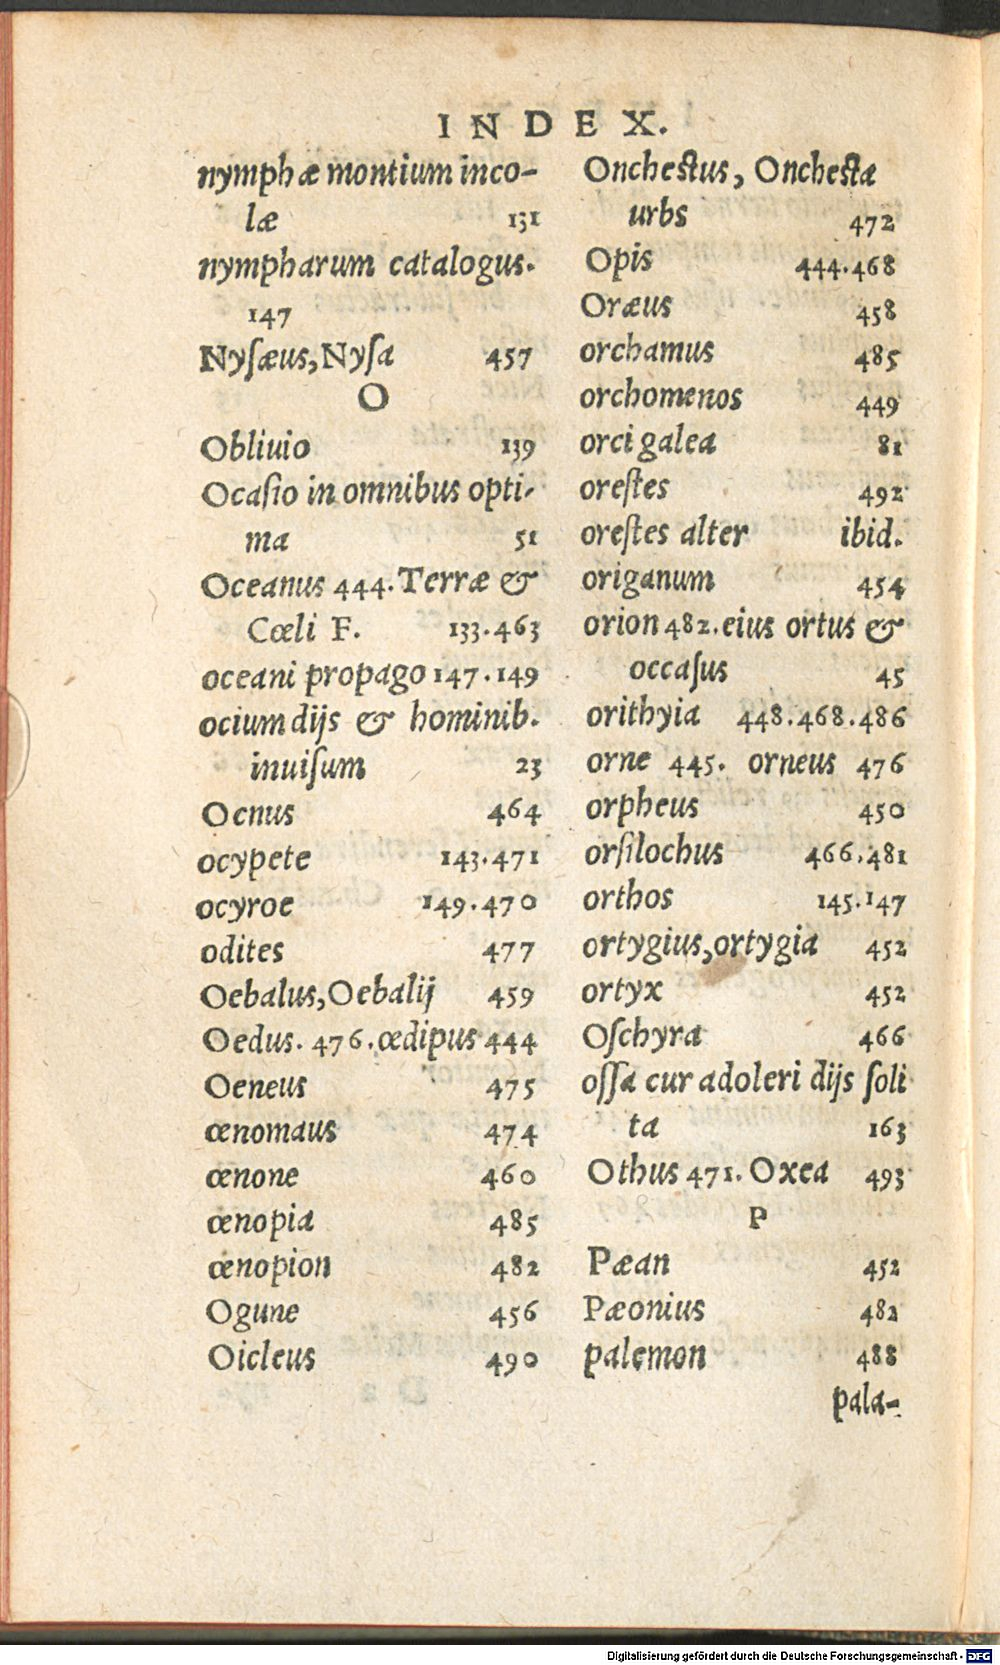 INDEX.
nymphæ montium inco-
læ 131
nympharum catalogus.
147
Nyſæus, Nyſa 457
O
Obliuio 139
Ocaſio in omnibus opti-
ma 51
Oceanus 444. Terræ &
Cœli F. 133.463
oceani propago 147.149
ocium dijs & hominib.
inuiſum 23
Ocnus 464
ocypete 143.471
ocyroe 149.470
odites 477
Oebalus, Oebalij 459
Oedus. 476. œdipus 444
Oeneus 475
œnomaus 474
œnone 460
œnopia 485
œnopion 482
Ogune 456
Oicleus 490
Onchestus, Onchestæ
urbs 472
Opis 444.468
Oræus 458
orchamus 485
orchomenos 449
orci galea 81
oreſtes 492
oreſtes alter ibid.
origanum 454
orion 482. eius ortus &
occaſus 45
orithyia 448.468.486
orne 445. orneus 476
orpheus 450
orſilochus 466.481
orthos 145.147
ortygius, ortygia 452
ortyx 452
Oſchyra 466
oſſa cur adoleri dijs ſoli
ta 163
Othus 471. Oxea 493
P
Pæan 452
Pæonius 482
palemon 488
pala-
Digitalisierung gefördert durch die Deutsche Forschungsgemeinschaft - DFG